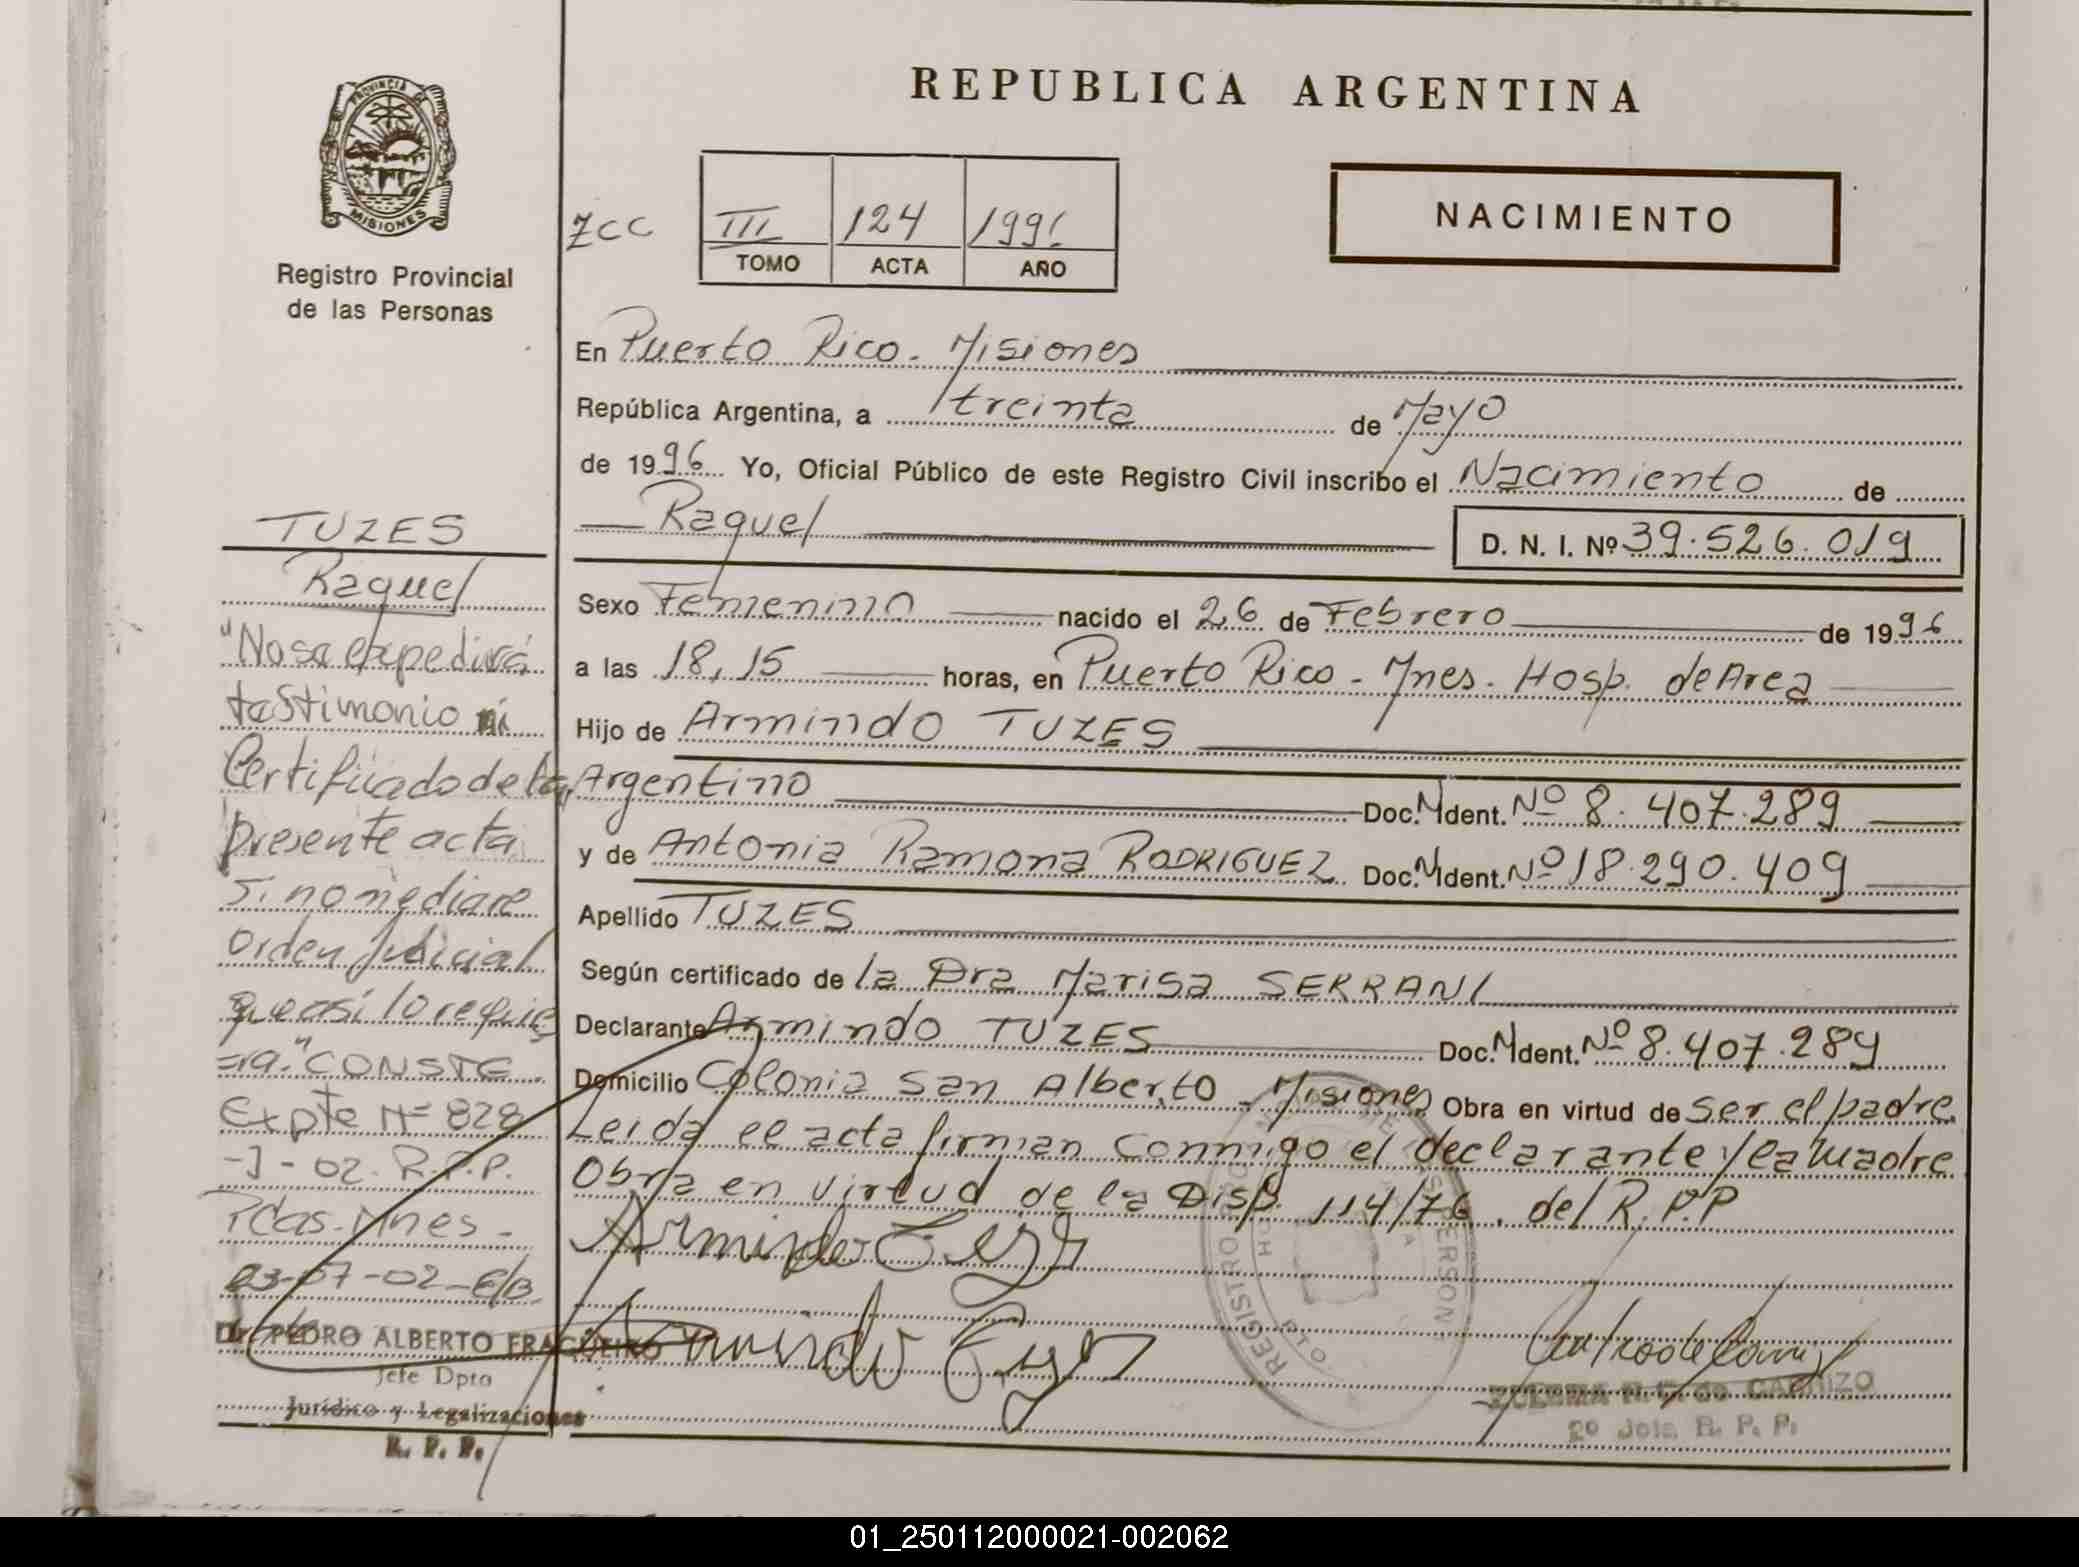 REPUBLICA ARGENTINA
PROVINCIA DE
MISIONES
Registro Provincial
de las Personas
ZCC
III 124 1996
TOMO ACTA AÑO
NACIMIENTO
En Puerto Rico - Misiones
República Argentina, a treinta de Mayo
de 1996 Yo, Oficial Público de este Registro Civil inscribo el Nacimiento de
Raquel
D. N. I. Nº 39.526.019
Sexo Femenino nacido el 26 de Febrero de 1996
a las 18,15 horas, en Puerto Rico - Mnes. Hosp. de Area
Hijo de Armindo TUZES
Argentino Doc. Ident. Nº 8.407.289
y de Antonia Ramona RODRIGUEZ Doc. Ident. Nº 18.290.409
Apellido TUZES
Según certificado de la Dra Marisa SERRANI
Declarante Armindo TUZES Doc. Ident. Nº 8.407.289
Domicilio Colonia San Alberto - Misiones Obra en virtud de ser el padre.
Leida el acta firman conmigo el declarante y la Madre
Obra en virtud de la Disp. 114/76. del R.P.P
Armindo
Armindo
TUZES
Raquel
"No se expedirá
testimonio ni
Certificado de la
presente acta
si no mediare
Orden Judicial
que así lo requie
=ra." CONSTE.
Expte Nº 828
-J-02. R.P.P.
Pdas. Mnes -
03-07-02
Dr. PEDRO ALBERTO FRAGUEIRO
Jefe Dpto
Jurídico y Legalizaciones
R. P. P.
REGISTRO
PTO.
ZULEMA de CARRIZO
R. P. P.
01_250112000021-002062